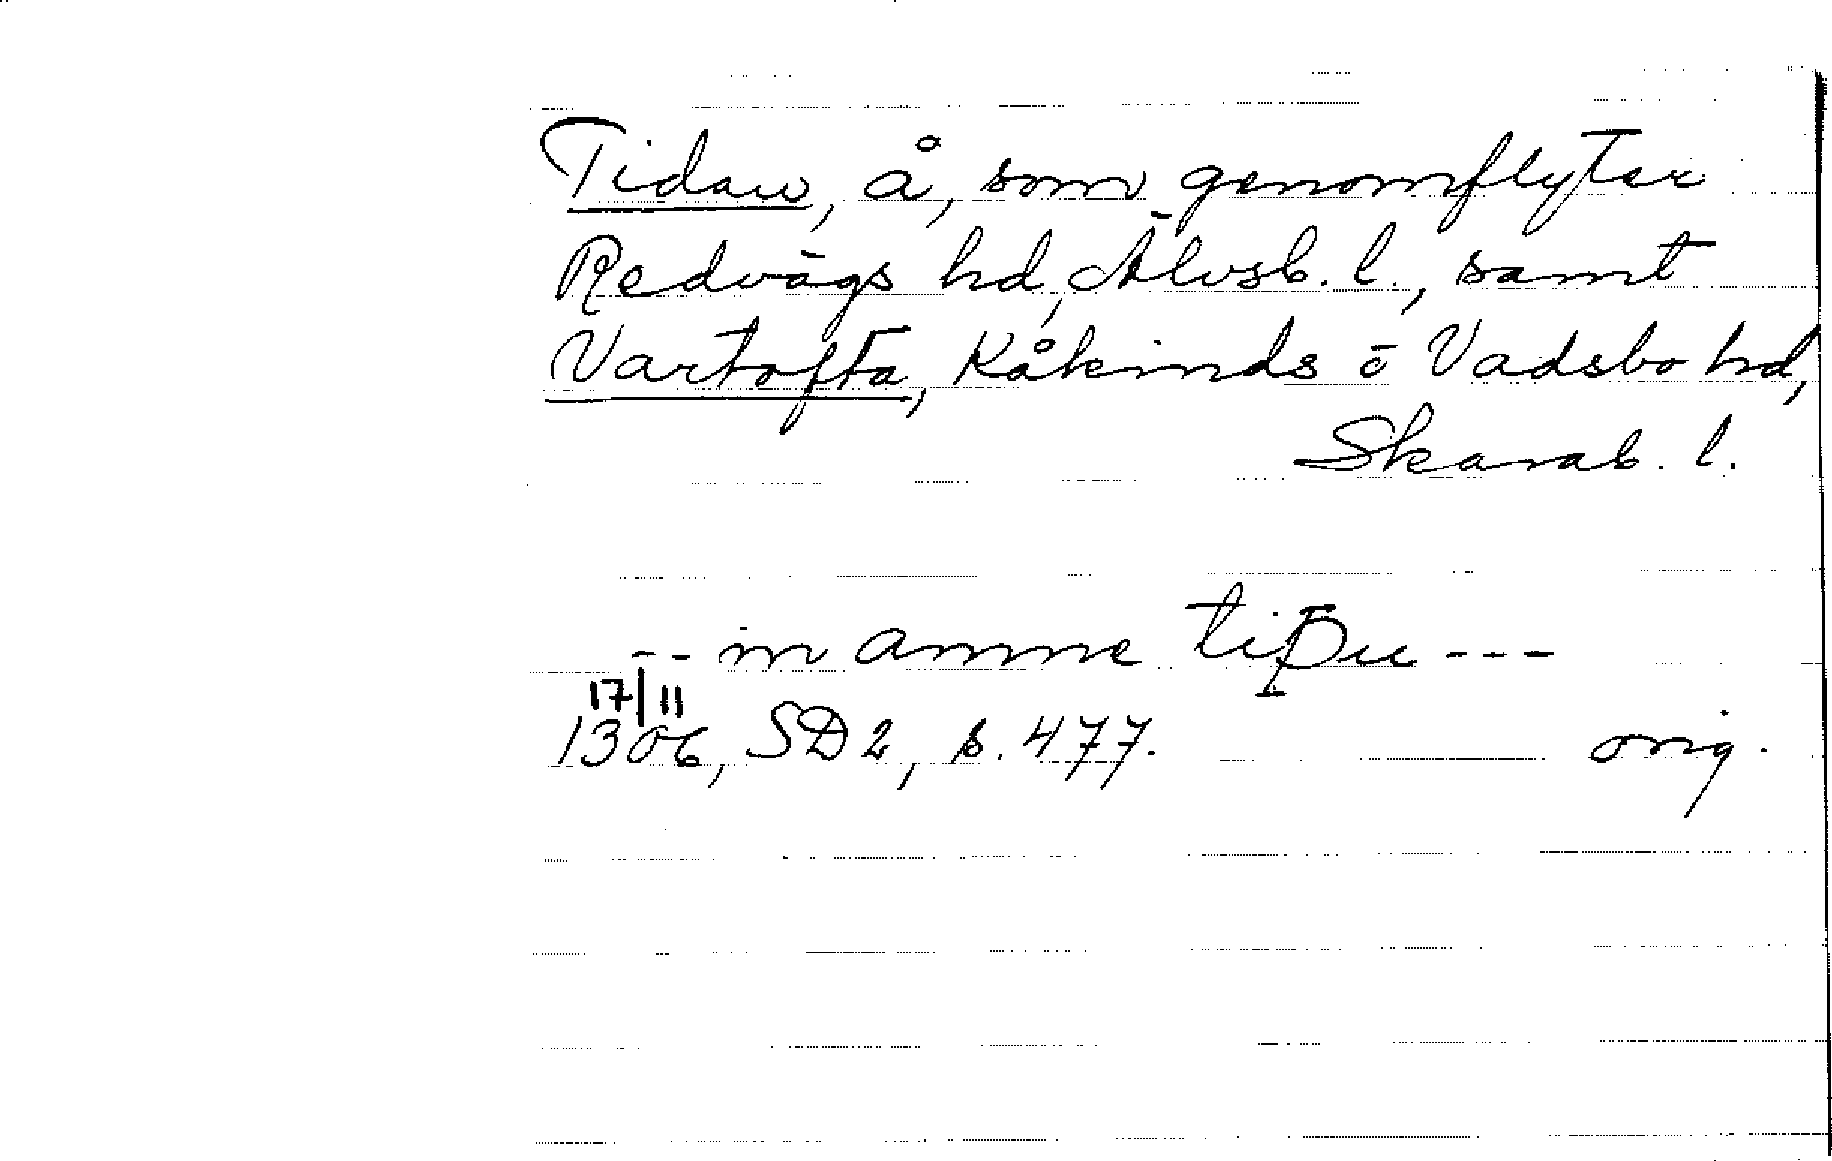 Tidan, å, som genomflyter
Redvägs hd, Älvsb. l., samt
Vartofta, Kåkinds o Vadsbo hd,
Skarab. l.
-- in amne tiþu ---
17/11
1306, SD 2, s. 477. orig.